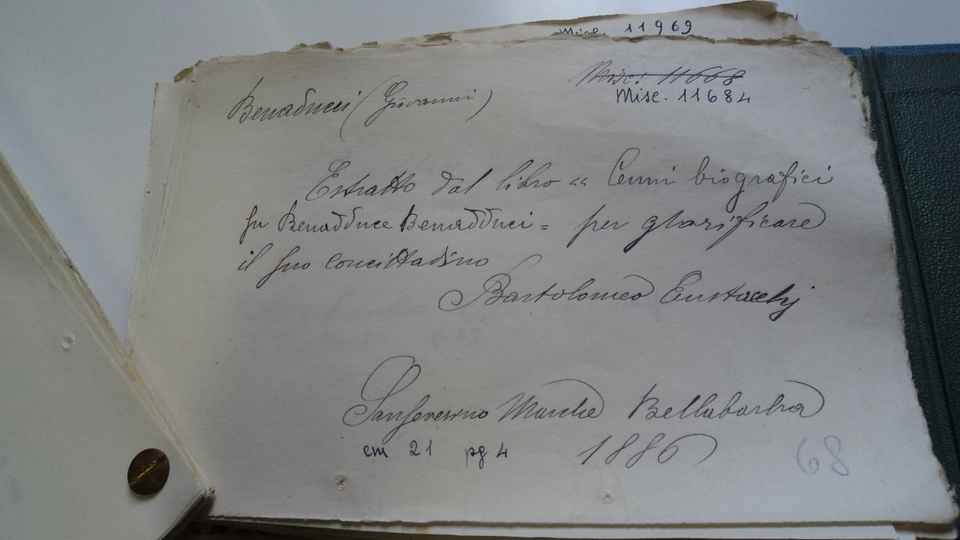 Misc. 11969
Misc. 11668
Misc. 11684
Benaducci (Giovanni)
Estratto dal libro « Cenni biografici
su Benadduce Benadduci = per glorificare
il suo concittadino
Bartolomeo Eustachj
Sanseverino Marche Bellabarba
cm 21 pg 4 1886
68